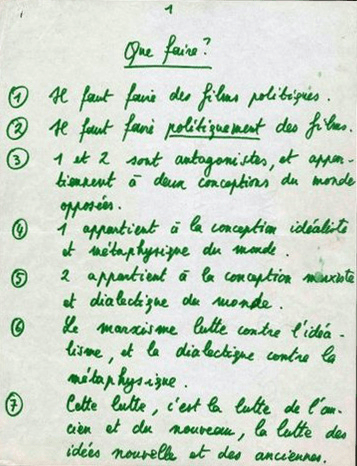 1
Que faire?
1 Il faut faire des films politiques.
2 Il faut faire politiquement des films.
3 1 et 2 sont antagonistes, et appar-
tiennent à deux conceptions du monde
opposées.
4 1 appartient à la conception idéaliste
et métaphysique du monde.
5 2 appartient à la conception marxiste
et dialectique du monde.
6 Le marxisme lutte contre l'idéa-
lisme, et la dialectique contre la
métaphysique.
7 Cette lutte, c'est la lutte de l'an-
cien et du nouveau, la lutte des
idées nouvelles et des anciennes.